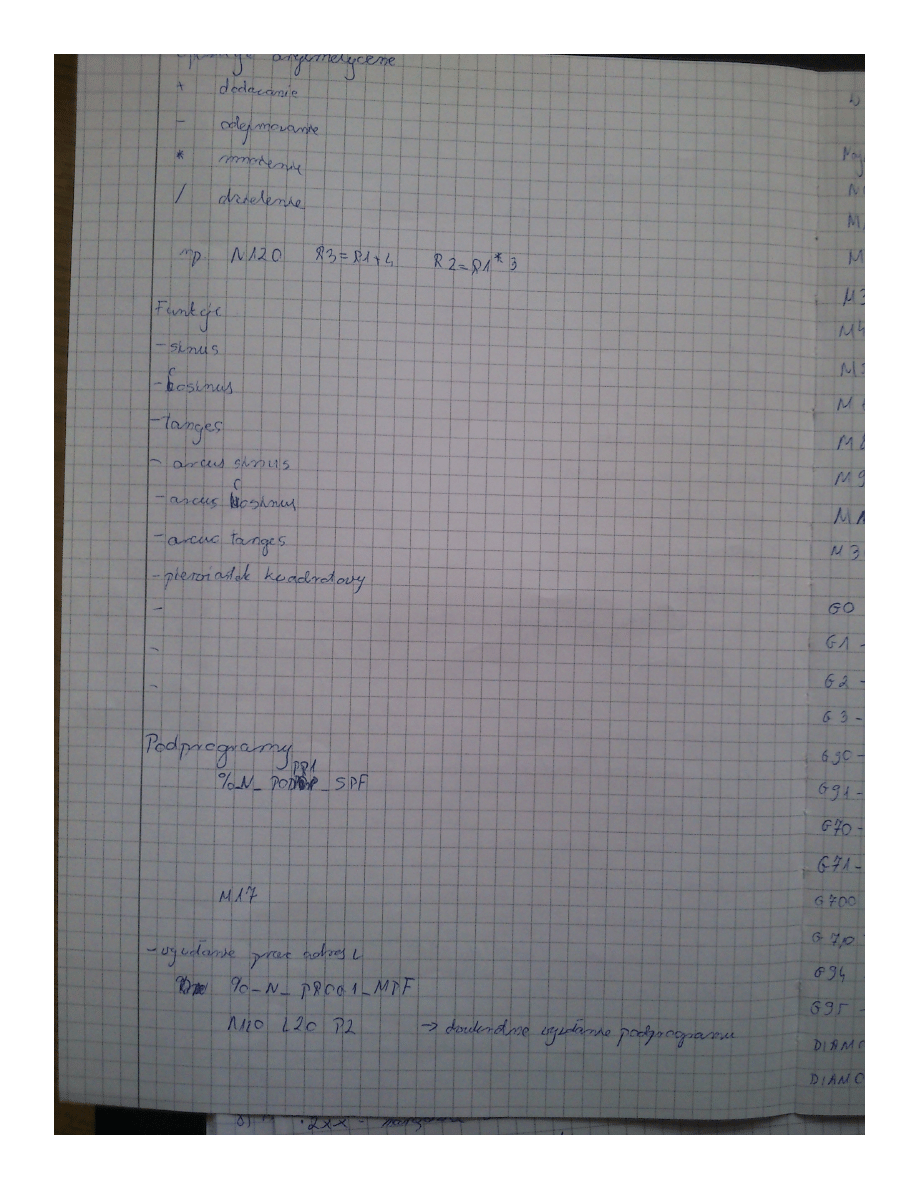 Operacje arytmetyczne
+ dodawanie
- odejmowanie
* mnożenie
/ dzielenie
np. N120 R3=R1+4 R2=R1*3
Funkcje
- sinus
- cosinus
- tanges
- arcus sinus
- arcus cosinus
- arcus tanges
- pierwiastek kwadratowy
-
-
-
Podprogramy
PR1
%_N_ POD _ SPF
M17
- wywołanie przez adres L
%_N_ PROG1_MPF
N110 L20 P2 -> dwukrotne wywołanie podprogramu
M3
M4
M9
M3
G0
G1 -
G2 -
G3 -
G90 -
G91 -
G70 -
G71 -
G700
G94
G95
DIAMO
DIAMO